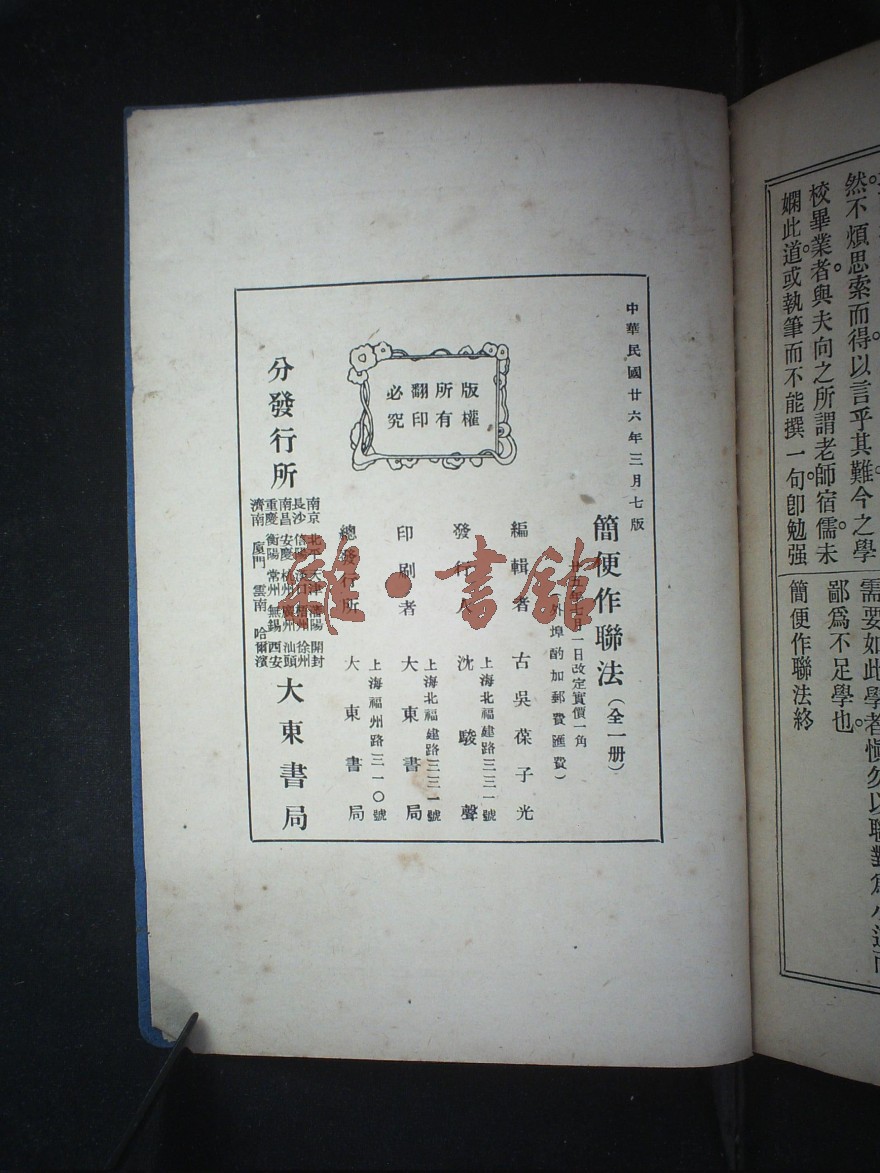 然不煩思索而得。以言乎其難。今之學
校畢業者。與夫向之所謂老師宿儒。未
嫻此道。或執筆而不能撰一句。卽勉强
需要如此。學者愼勿以聯對爲小道而
鄙爲不足學也。
簡便作聯法終
中華民國廿六年三月七版
簡便作聯法（全一册）
廿五年七月一日改定實價一角
（外埠酌加郵費匯費）
編輯者 古吳葆子光
發行人 沈駿聲
上海北福建路三三一號
印刷者 大東書局
上海北福建路三三一號
總發行所 大東書局
上海福州路三一〇號
版權所有
翻印必究
分發行所
南京 北平 天津 瀋陽 開封
長沙 漢口 梧州 徐州
南昌 安慶 杭州 廣州 汕頭
重慶 衡陽 常州 無錫 西安
濟南 廈門 雲南 哈爾濱
大東書局
雜·書館